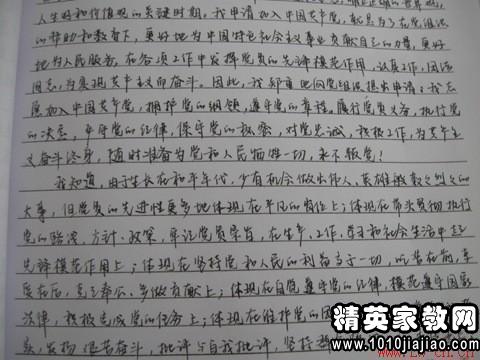 人生好和价值观的关键时期。我申请加入中国共产党,就是为了在党组织
的帮助和教育下,更好地为中国特色社会主义事业贡献自己的力量,更好
地为人民服务,在各项工作中发挥党员的先锋模范作用,认真工作,团结
同志,为实现共产主义而奋斗。因此,我郑重地向党组织提出申请:我志
愿加入中国共产党,拥护党的纲领,遵守党的章程,履行党员义务,执行党
的决定,严守党的纪律,保守党的秘密,对党忠诚,积极工作,为共产主
义奋斗终身,随时准备为党和人民牺牲一切,永不叛党!
我知道,由于生长在和平年代,少有机会做出伟人、英雄般轰轰烈烈的
大事,但党员的先进性更多地体现在平凡的岗位上;体现在带头贯彻执行
党的路线、方针、政策,牢记党员宗旨,在生产、工作、学习和社会生活中起
先锋模范作用上;体现在坚持党和人民的利益高于一切,吃苦在前,享
受在后,克己奉公、多做贡献上;体现在自觉遵守党的纪律,模范遵守国家
法律,积极完成党的任务上;体现在维护党的团
发扬 艰苦奋斗,批评与自我批评,坚持
精英家教网
www.1010jiajiao.com